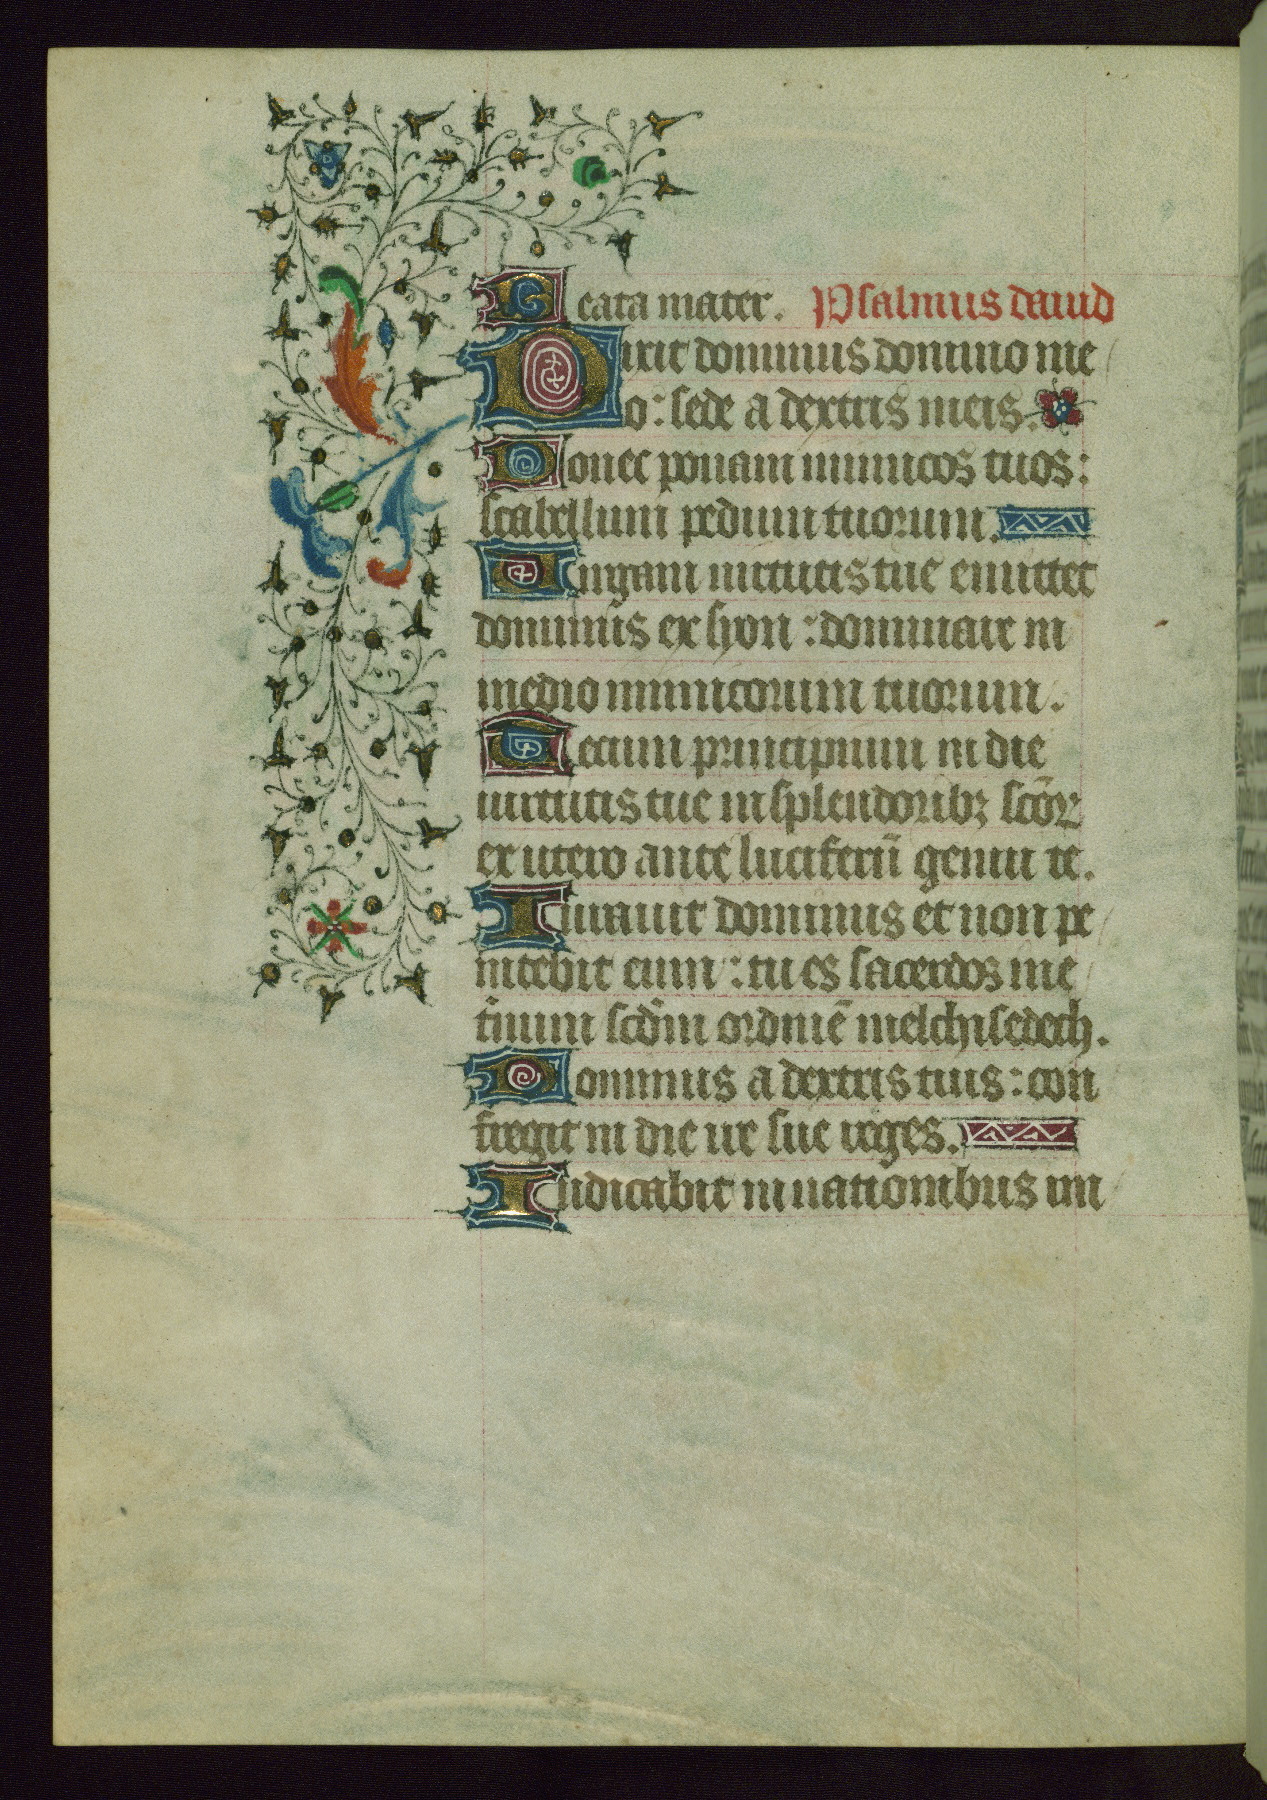 Beata mater. Psalmus dauid
Dixit dominus domino me
o: sede a dextris meis.
Donec ponam inimicos tuos:
scabellum pedum tuorum.
Uirgam uirtutis tue emittet
dominus ex syon: dominare in
medio inimicorum tuorum.
Tecum principium in die
uirtutis tue in splendoribꝫ sc̄oꝝ
ex utero ante luciferū genui te.
Iurauit dominus et non pe
nitebit eum: tu es sacerdos in e
t̄num scd̄m ordinē melchisedech.
Dominus a dextris tuis: con
fregit in die ire sue reges.
Iudicabit in nationibus im